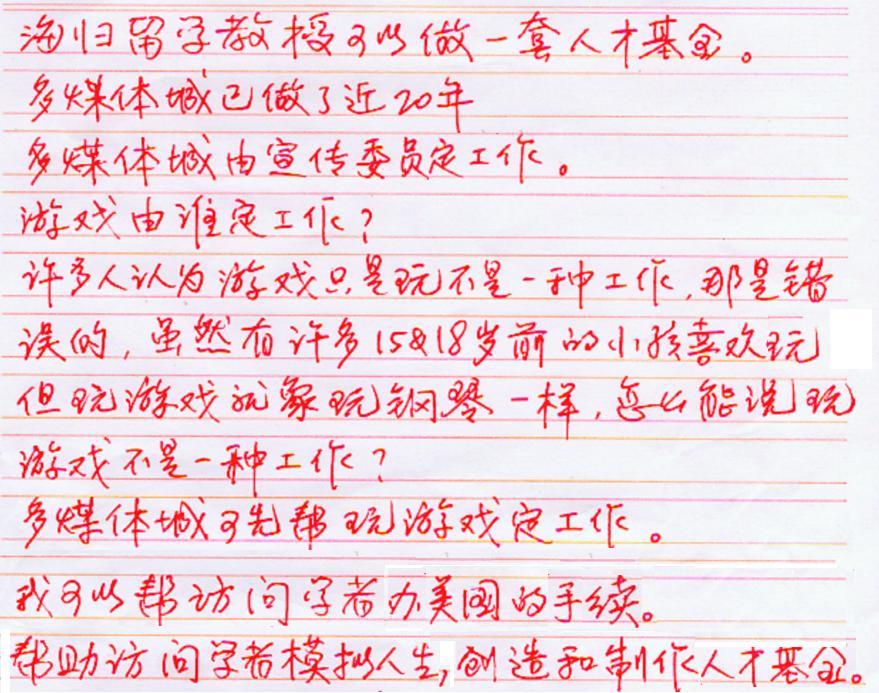 海归留学教授可以做一套人才基金。
多媒体城已做了近20年
多媒体城由宣传委员定工作。
游戏由谁定工作？
许多人认为游戏只是玩不是一种工作,那是错
误的,虽然有许多15&18岁前的小孩喜欢玩
但玩游戏就象玩钢琴一样,怎么能说玩
游戏不是一种工作？
多媒体城可先帮玩游戏定工作。
我可以帮访问学者办美国的手续。
帮助访问学者模拟人生,创造和制作人才基金。